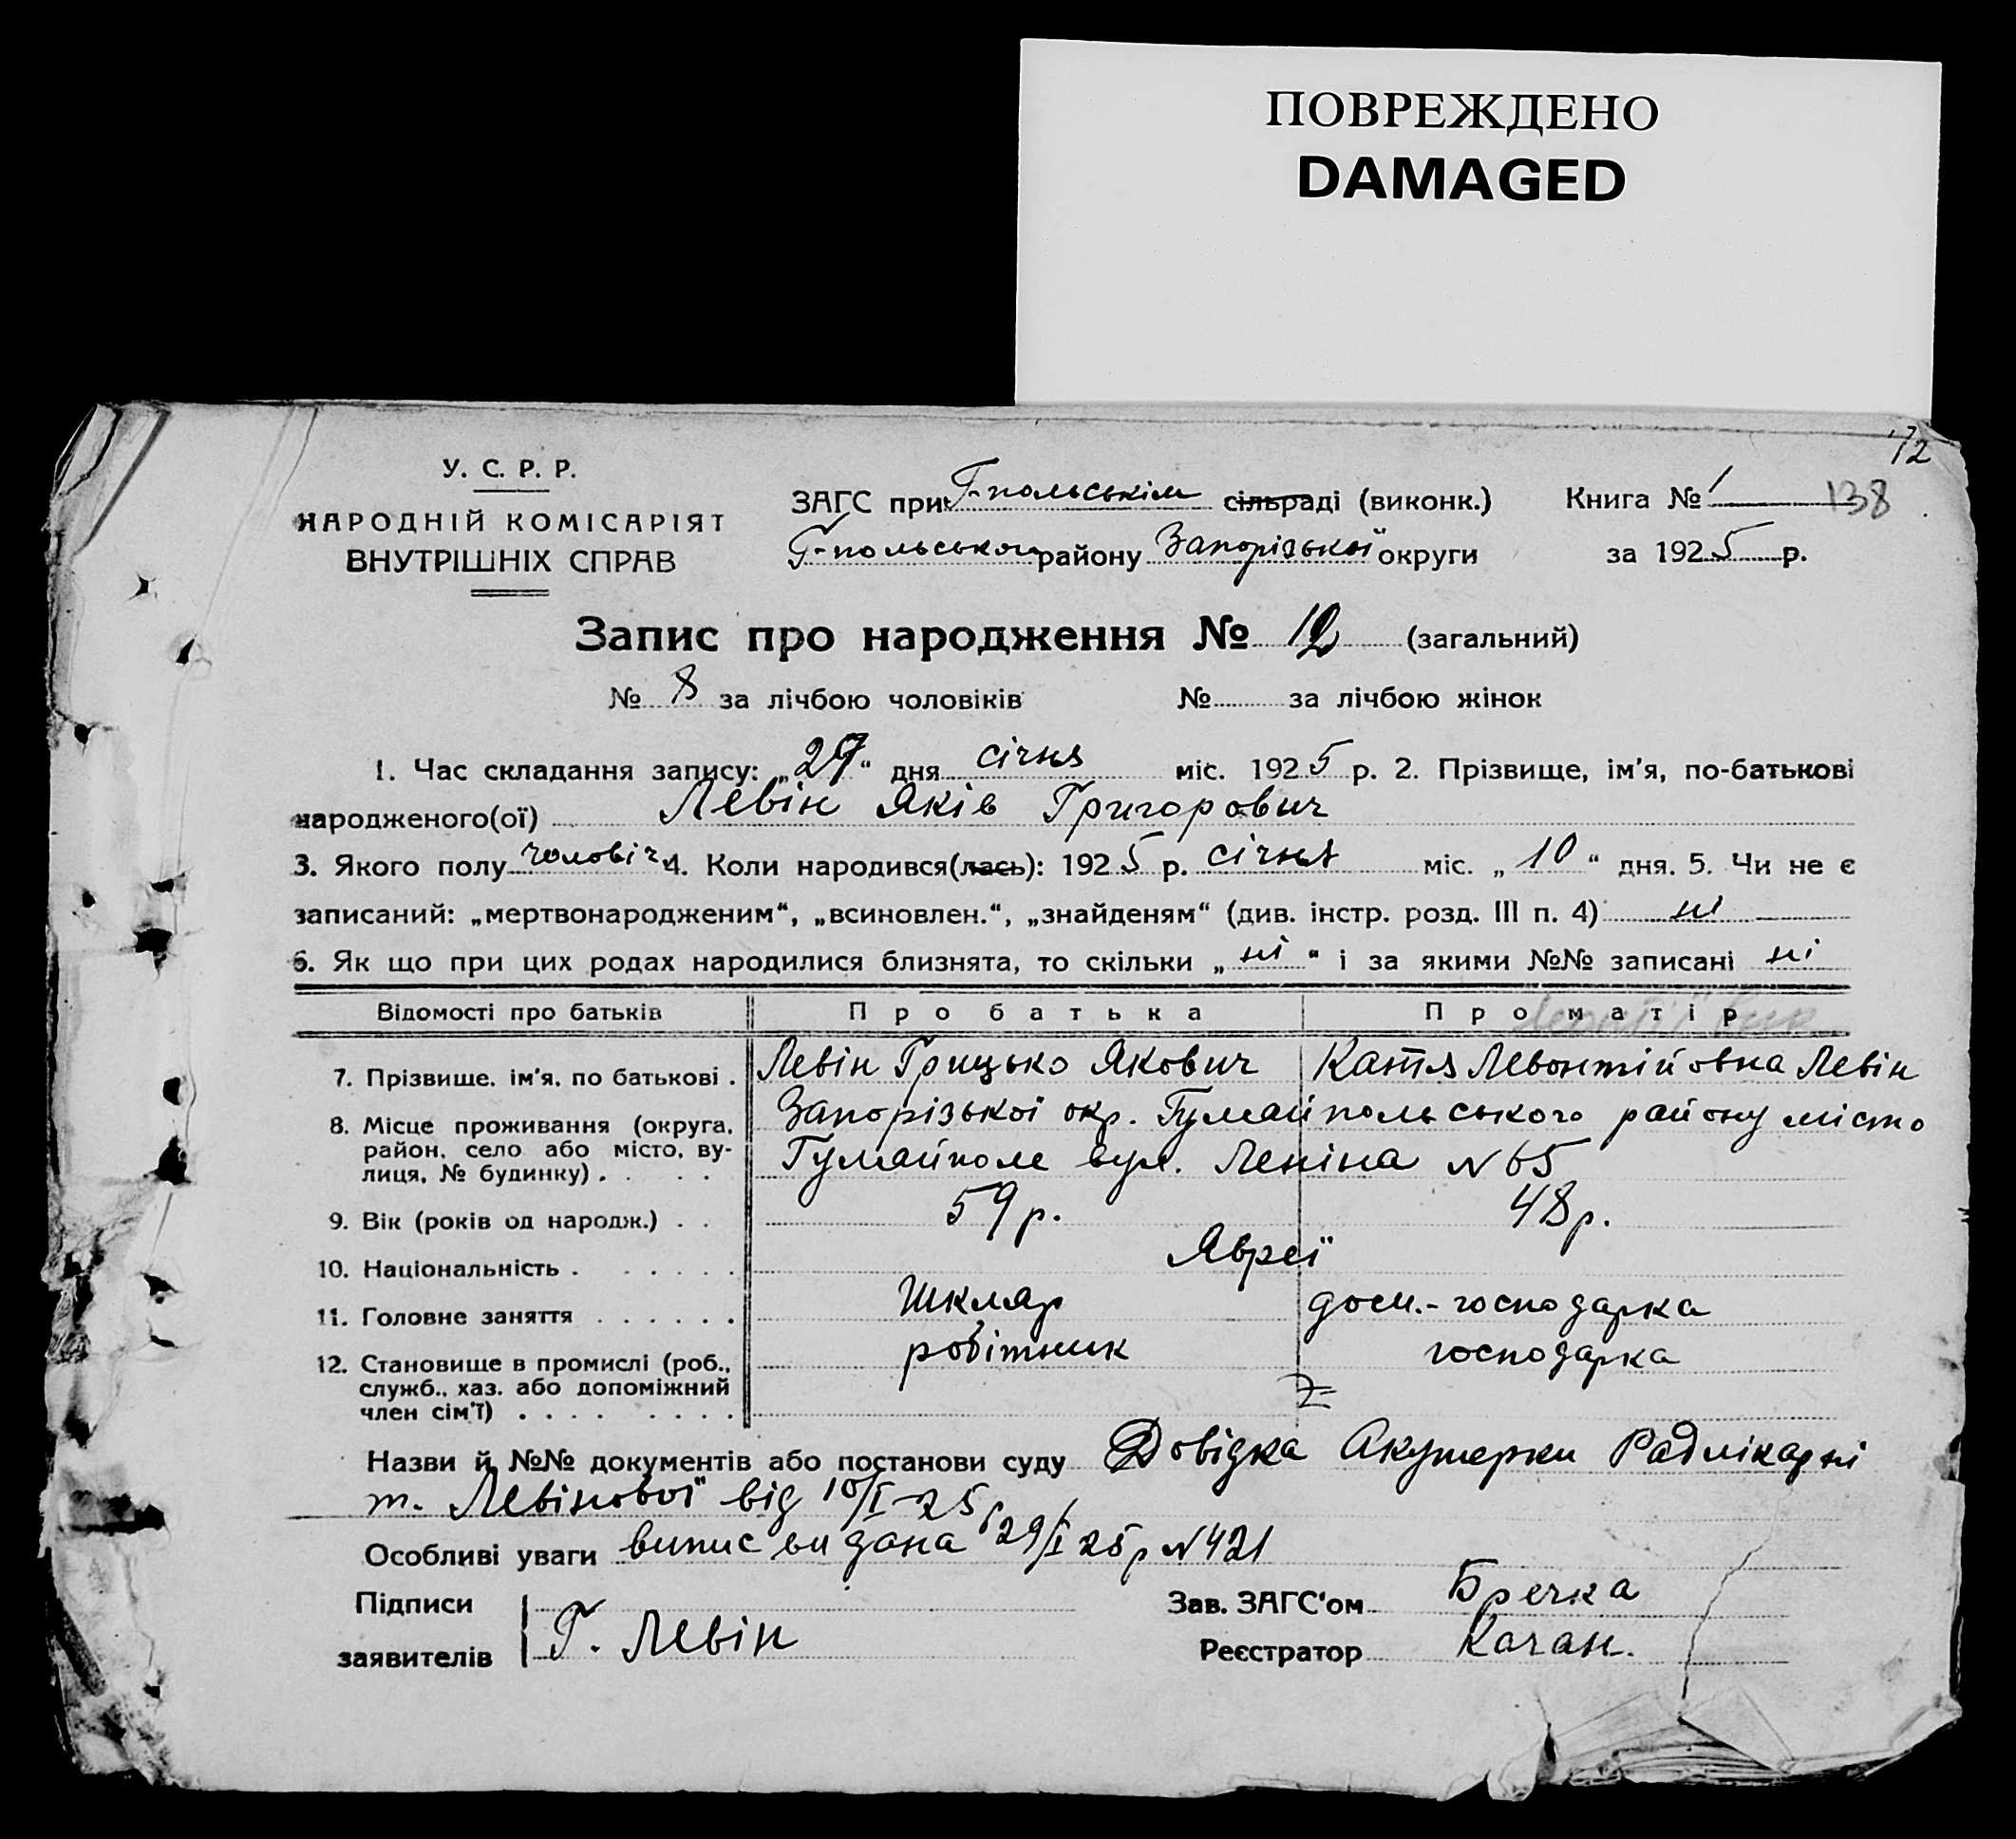 ПОВРЕЖДЕНО
DAMAGED
72
У. С. Р. Р.
НАРОДНІЙ КОМІСАРІЯТ
ВНУТРІШНІХ СПРАВ
ЗАГС при Г-польськім сільраді (виконк.) Книга № 1 138
Г-польського району Запорізької округи за 1925 р.
Запис про народження № 12 (загальний)
№ 8 за лічбою чоловіків № за лічбою жінок
1. Час складання запису: „29“ дня січня міс. 1925 р. 2. Прізвище, ім'я, по-батькові
народженого(ої) Левін Яків Григорович
3. Якого полу чоловіч. 4. Коли народився(лась): 1925 р. січня міс. „10“ дня. 5. Чи не є
записаний: „мертвонародженим“, „всиновлен.“, „знайденям“ (див. інстр. розд. III п. 4) ні
6. Як що при цих родах народилися близнята, то скільки „ні“ і за якими №№ записані ні
Відомості про батьків Про батька Про матір
7. Прізвище, ім'я, по батькові . Левін Грицько Якович Катя Левонтійовна Левін
8. Місце проживання (округа, Запорізької окр. Гуляйпольського району місто
район, село або місто, ву-
лиця, № будинку) . Гуляйполе вул. Леніна N 65
9. Вік (років од народж.) . . 59 р. 48 р.
10. Національність . Явреї
11. Головне заняття Шкляр дом.-господарка
12. Становище в промислі (роб., робітник господарка
служб., хаз. або допоміжний
член сім'ї)
Назви й №№ документів або постанови суду Довідка Акушерки Радлікарні
т. Левінової від 10/I-25
Особливі уваги випис видана 29/I 25 р N 421
Підписи
заявителів Г. Левін
Зав. ЗАГС'ом Бречка
Реєстратор Качан.